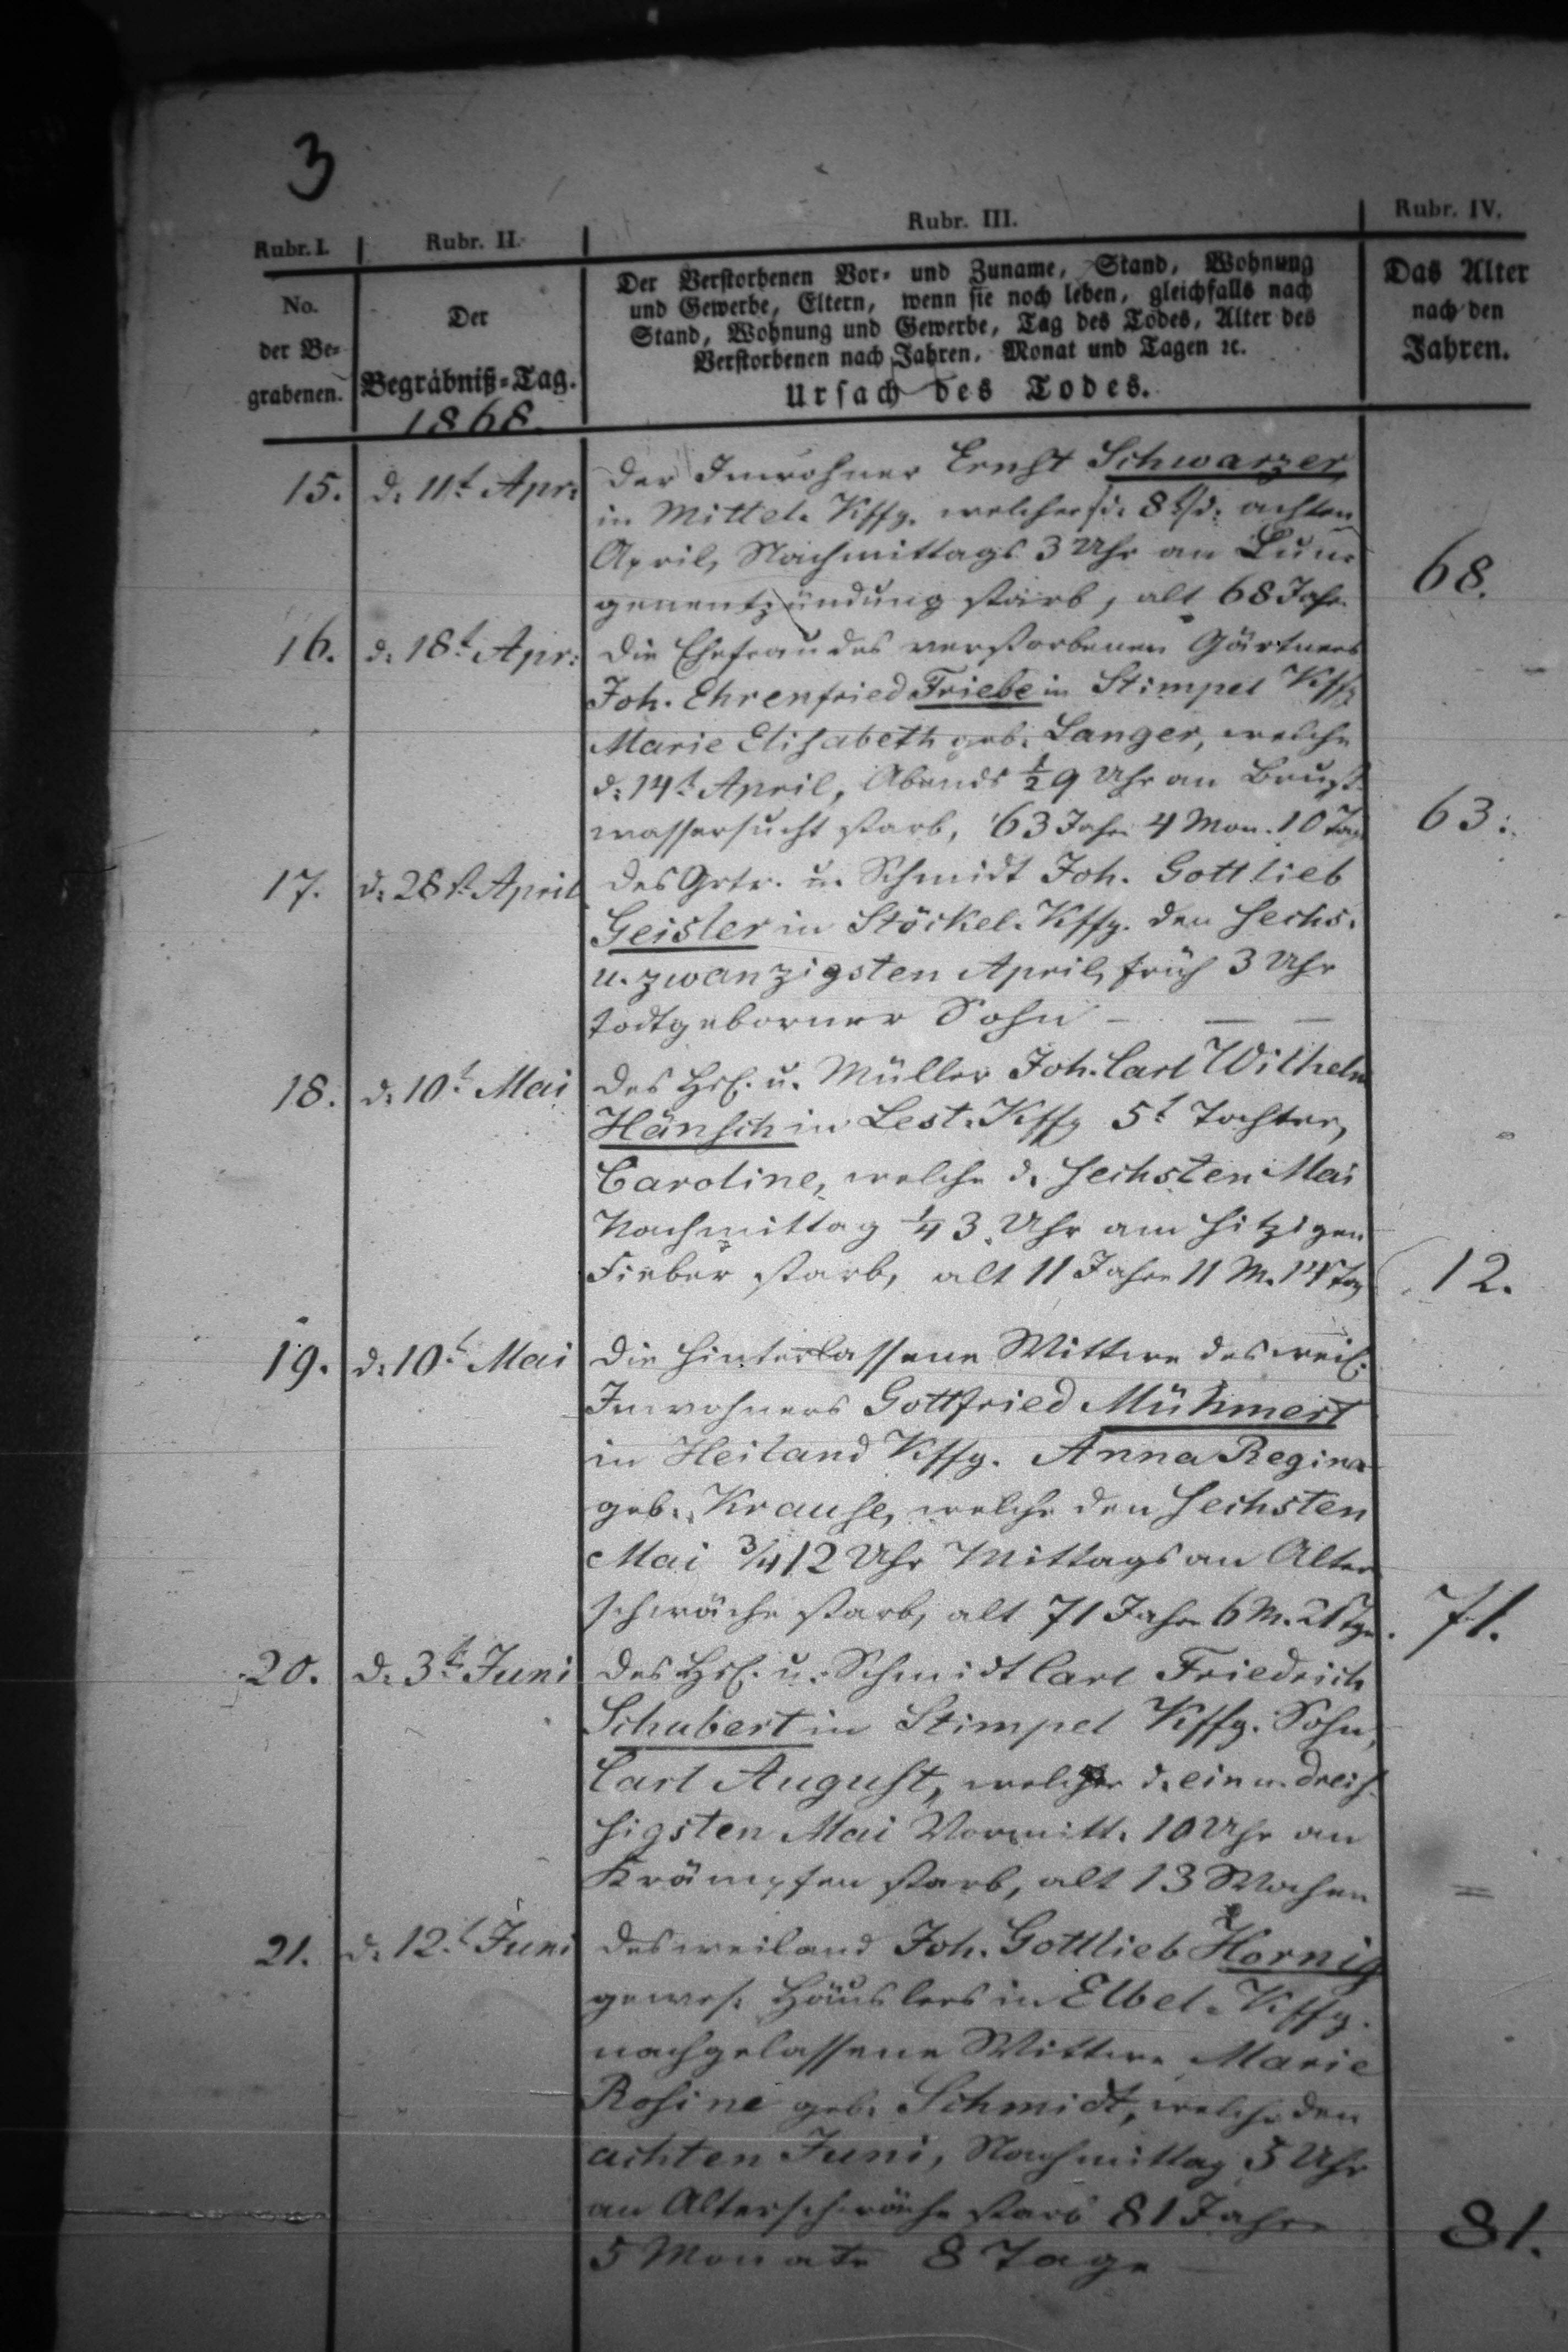 3
Rubr. I. Rubr. II. Rubr. III. Rubr. IV.
No.
der Be-
grabenen.
Der
Begräbniß-Tag.
1868.
Der Verstorbenen Vor- und Zuname, Stand, Wohnung
und Gewerbe, Eltern, wenn sie noch leben, gleichfalls nach
Stand, Wohnung und Gewerbe, Tag des Todes, Alter des
Verstorbenen nach Jahren, Monat und Tagen ꝛc.
Ursach des Todes.
Das Alter
nach den
Jahren.
15. d: 11t Apr: Der Inwohner Ernst Schwarzer
in Mittel-Kffg. welcher d: 8t d: achten
April, Nachmittags 3 Uhr an Lun-
genentzündung starb, alt 68 Jahr 68.
16. d: 18t Apr: Die Ehefrau des verstorbenen Gärtners
Joh. Ehrenfried Triebe in Stimpel Kffg
Marie Elisabeth geb. Langer, welche
d: 14t April, Abends ½9 Uhr an Brust-
wassersucht starb, 63 Jahr 4 Mon. 10 Tag 63.
17. d: 28t April des Grtr. u. Schmidt Joh. Gottlieb
Geisler in Stöckel-Kffg. den sechs-
u. zwanzigsten April, früh 3 Uhr
todtgeborner Sohn – – –
18. d: 10t Mai des Hsl. u. Müller Joh. Carl Wilhelm
Hänsch in Lest-Kffg 5t Tochter,
Caroline, welche d. sechsten Mai
Nachmittag ¼3 Uhr am hitzigen
Fieber starb, alt 11 Jahre 11 M. 14 Tag 12.
19. d: 10t Mai Die hinterlassene Wittwe des weil.
Inwohners Gottfried Mühmert
in Heiland Kffg. Anna Regina
geb. Krause, welche den sechsten
Mai ¾12 Uhr Mittags an Alter
schwäche starb, alt 71 Jahr 6 M. 21 Tge. 71.
20. d. 3t Juni des Hsl. u. Schmidt Carl Friedrich
Schubert in Stimpel Kffg. Sohn,
Carl August, welcher d. ein u. dreis-
sigsten Mai Vormitt. 10 Uhr an
Krämpfen starb, alt 13 Wochen =
21. d: 12t Juni des weiland Joh. Gottlieb Hornig
gewes. Häuslers in Elbel-Kffg.
nachgelassene Wittwe Marie
Rosine geb. Schmidt, welche den
achten Juni, Nachmittag 5 Uhr
an Alterschwäche starb 81 Jahre
5 Monate 8 Tage – 81.